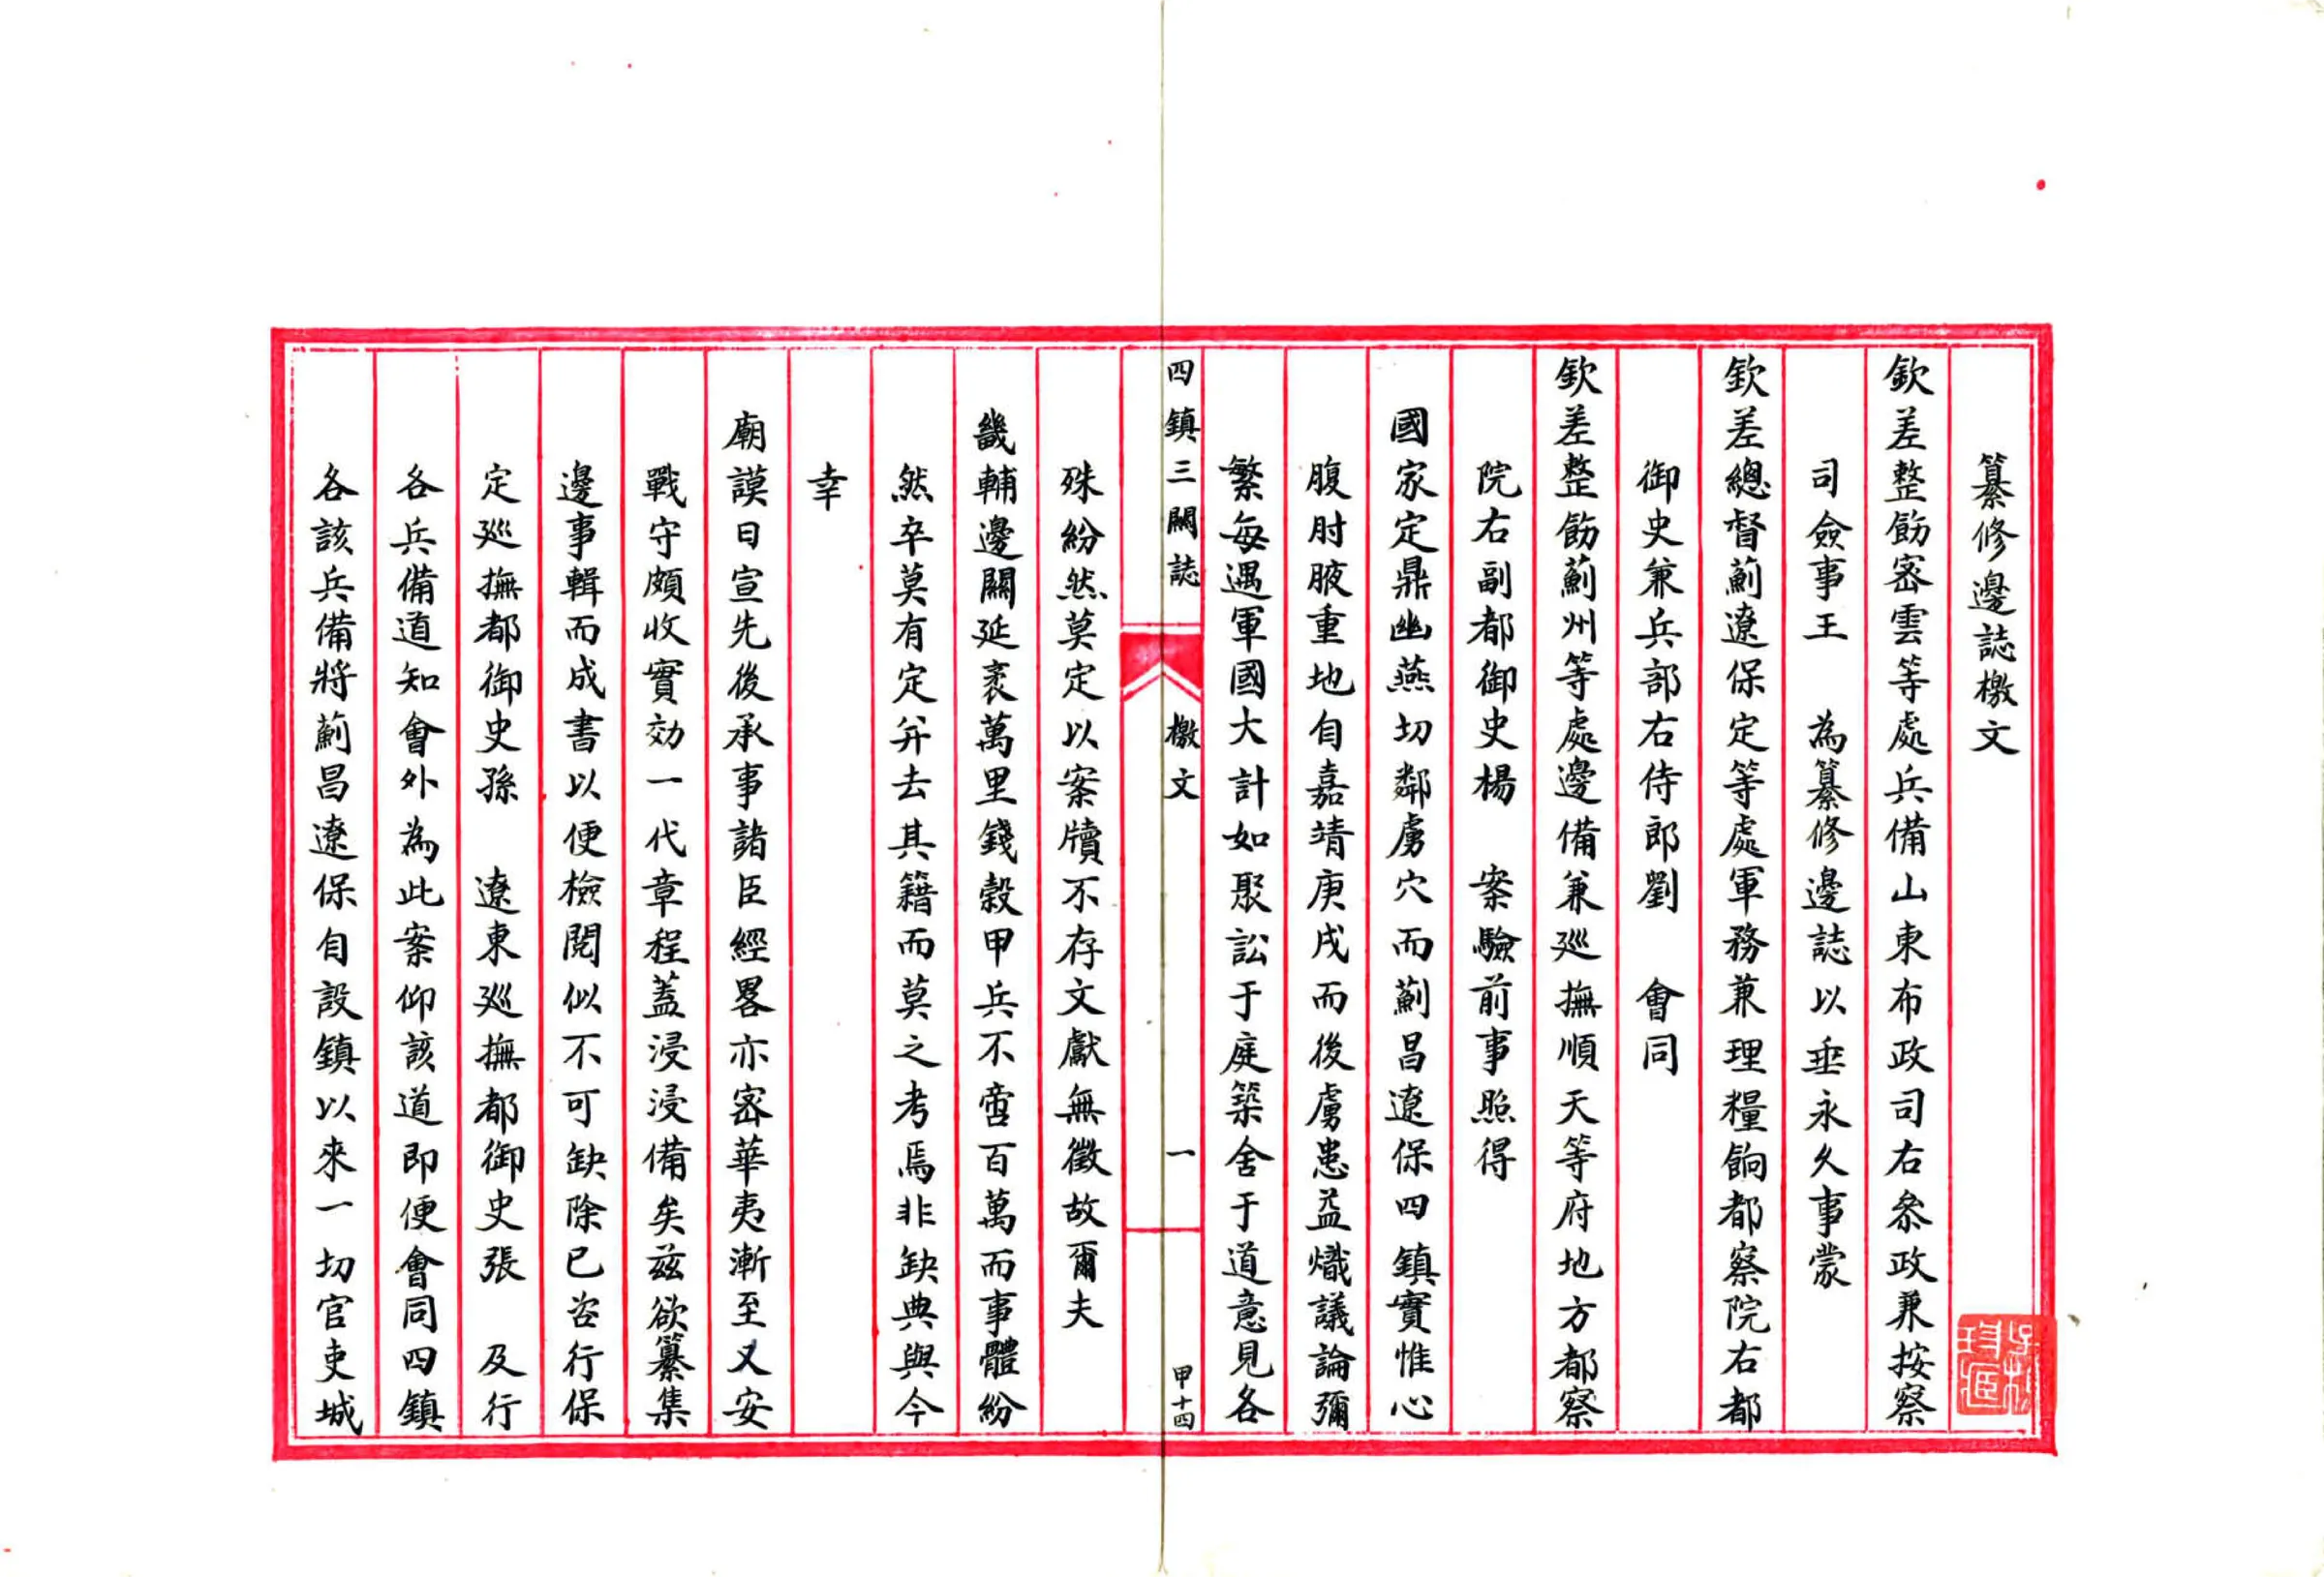 纂修邊誌檄文
欽差整飭密雲等處兵備山東布政司右叅政兼按察
司僉事王　為纂修邊誌以垂永久事蒙
欽差總督薊遼保定等處軍務兼理糧餉都察院右都
御史兼兵部右侍郎劉　會同
欽差整飭薊州等處邊備兼廵撫順天等府地方都察
院右副都御史楊　案驗前事照得
國家定鼎幽燕切鄰虜穴而薊昌遼保四鎮實惟心
腹肘腋重地自嘉靖庚戌而後虜患益熾議論彌
繁每遇軍國大計如聚訟于庭築舍于道意見各
四鎮三關誌　檄文　一　甲十四
殊紛然莫定以案牘不存文獻無徵故爾夫
畿輔邊關延袤萬里錢穀甲兵不啻百萬而事體紛
然卒莫有定弁去其籍而莫之考焉非缺典與今
幸
廟謨日宣先後承事諸臣經畧亦密華夷漸至乂安
戰守頗收實効一代章程蓋浸浸備矣茲欲纂集
邊事輯而成書以便檢閱似不可缺除已咨行保
定廵撫都御史孫　遼東廵撫都御史張　及行
各兵備道知會外為此案仰該道即便會同四鎮
各該兵備將薊昌遼保自設鎮以來一切官吏城